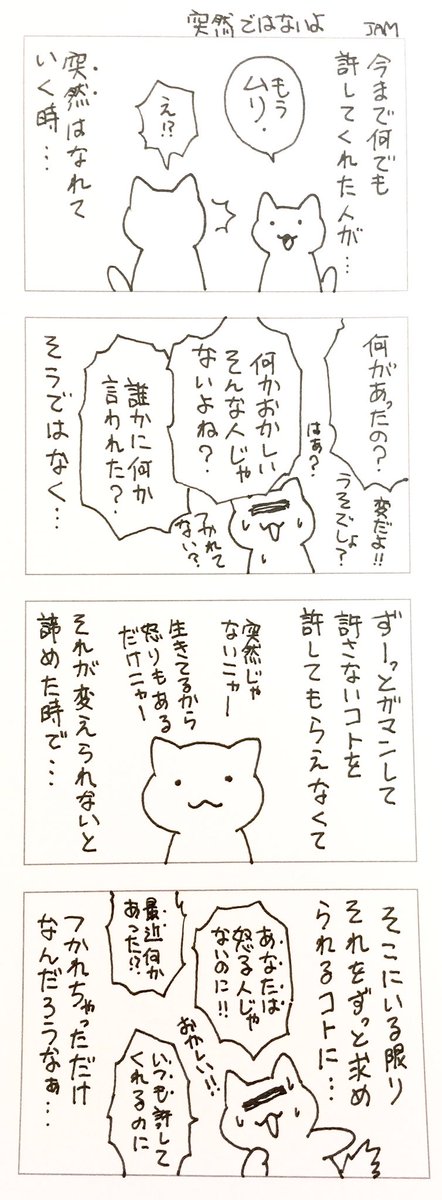 突然ではないよ
JAM
今まで何でも
許してくれた人が…
もう
ムリ.
え!?
突然はなれて
いく時…
何があったの?
変だよ!!
うそでしょ?
はぁ?
何かおかしい
そんな人じゃ
ないよね?
つかれて
ない?
誰かに何か
言われた?
そうではなく…
ずーっとガマンして
許さないコトを
許してもらえなくて
突然じゃ
ないニャー
生きてるから
怒りもある
だけニャー
それが変えられないと
諦めた時で…
そこにいる限り
それをずっと求め
られるコトに…
あなたは
怒る人じゃ
ないのに!!
おかしい!!
最近何か
あった!?
いつも許して
くれるのに
つかれちゃっただけ
なんだろうなぁ…